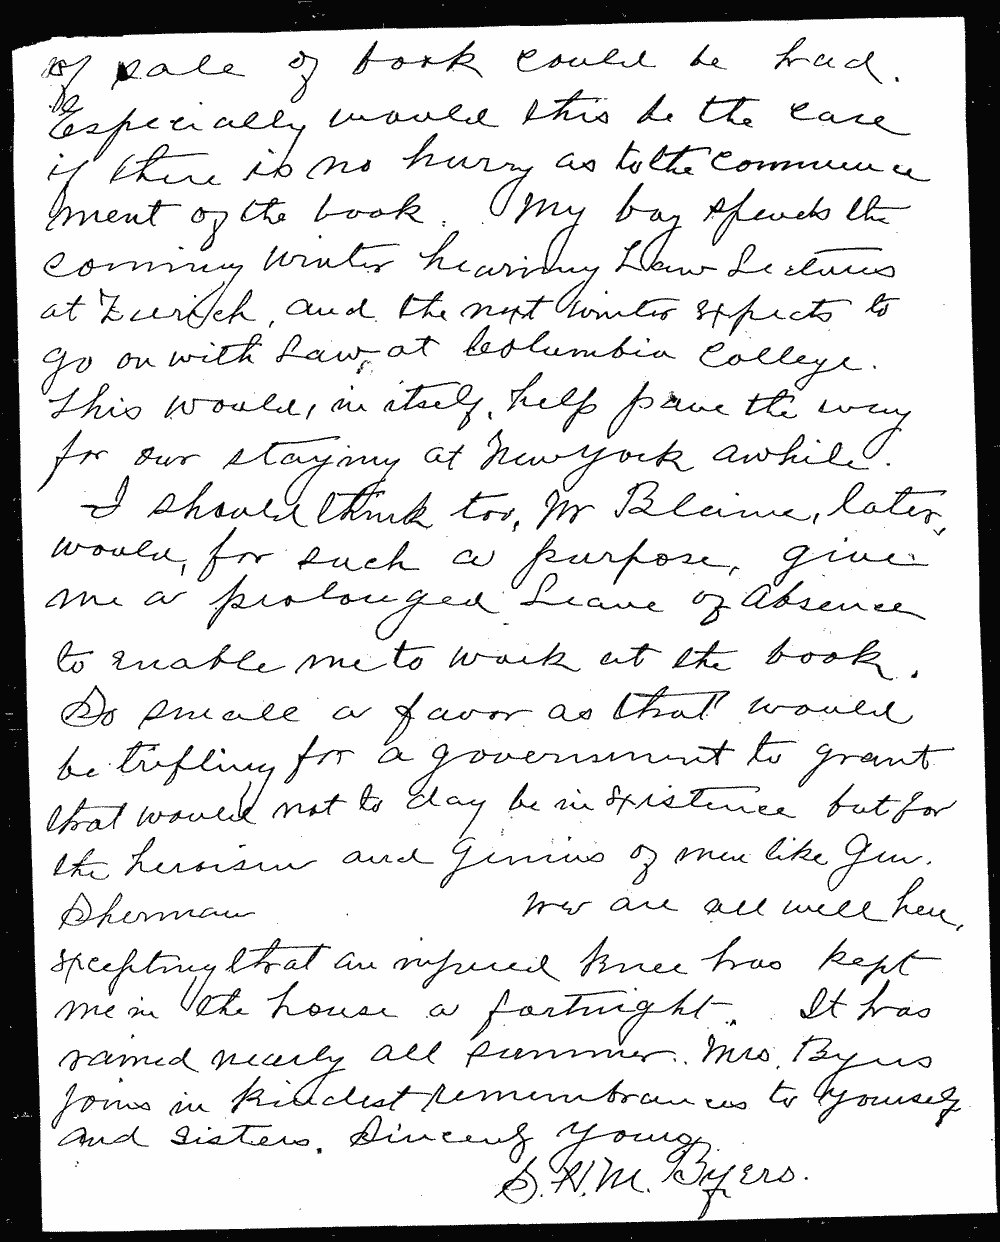 of sale of book could be had.
Especially would this be the case
if there is no hurry as to the commence
ment of the book. My boy spends the
coming winter hearing Law Lectures
at Zurich, and the next winter expects to
go on with Law, at Columbia College.
This would, in itself, help pave the way
for our staying at New York awhile.
I should think too, Mr Blaine, later,
would, for such a purpose, give
me a prolonged Leave of Absence
to enable me to work at the book.
So small a favor as that would
be trifling for a government to grant
that would not to day be in existence but for
the heroism and Genius of men like Gen.
Sherman We are all well here,
excepting that an injured knee has kept
me in the house a fortnight. It has
rained nearly all summer. Mrs. Byers
joins in kindest remembrances to yourself
and sisters. Sincerely Yours
S.H.M. Byers.